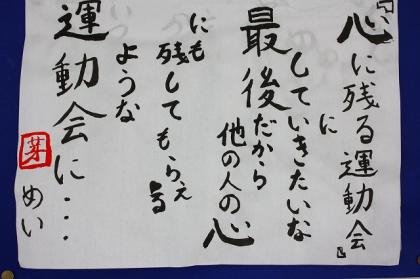 『心に残る運動会』
に
していきたいな
最後だから
他の人の心
にも
残してもらえる
ような
運動会に・・・
芽
めい